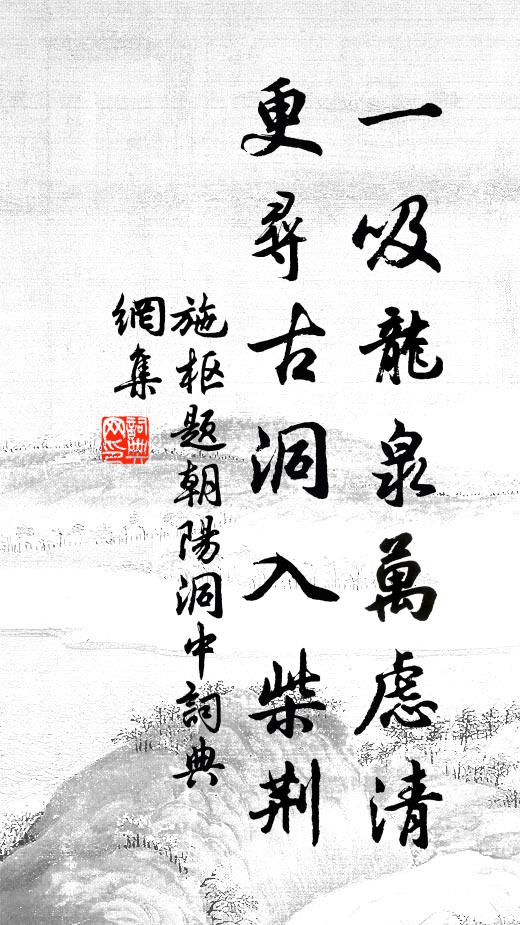 一吸龍泉萬慮清
更尋古洞入柴荆
施枢题朝陽洞中詞典
網集
詞典
网